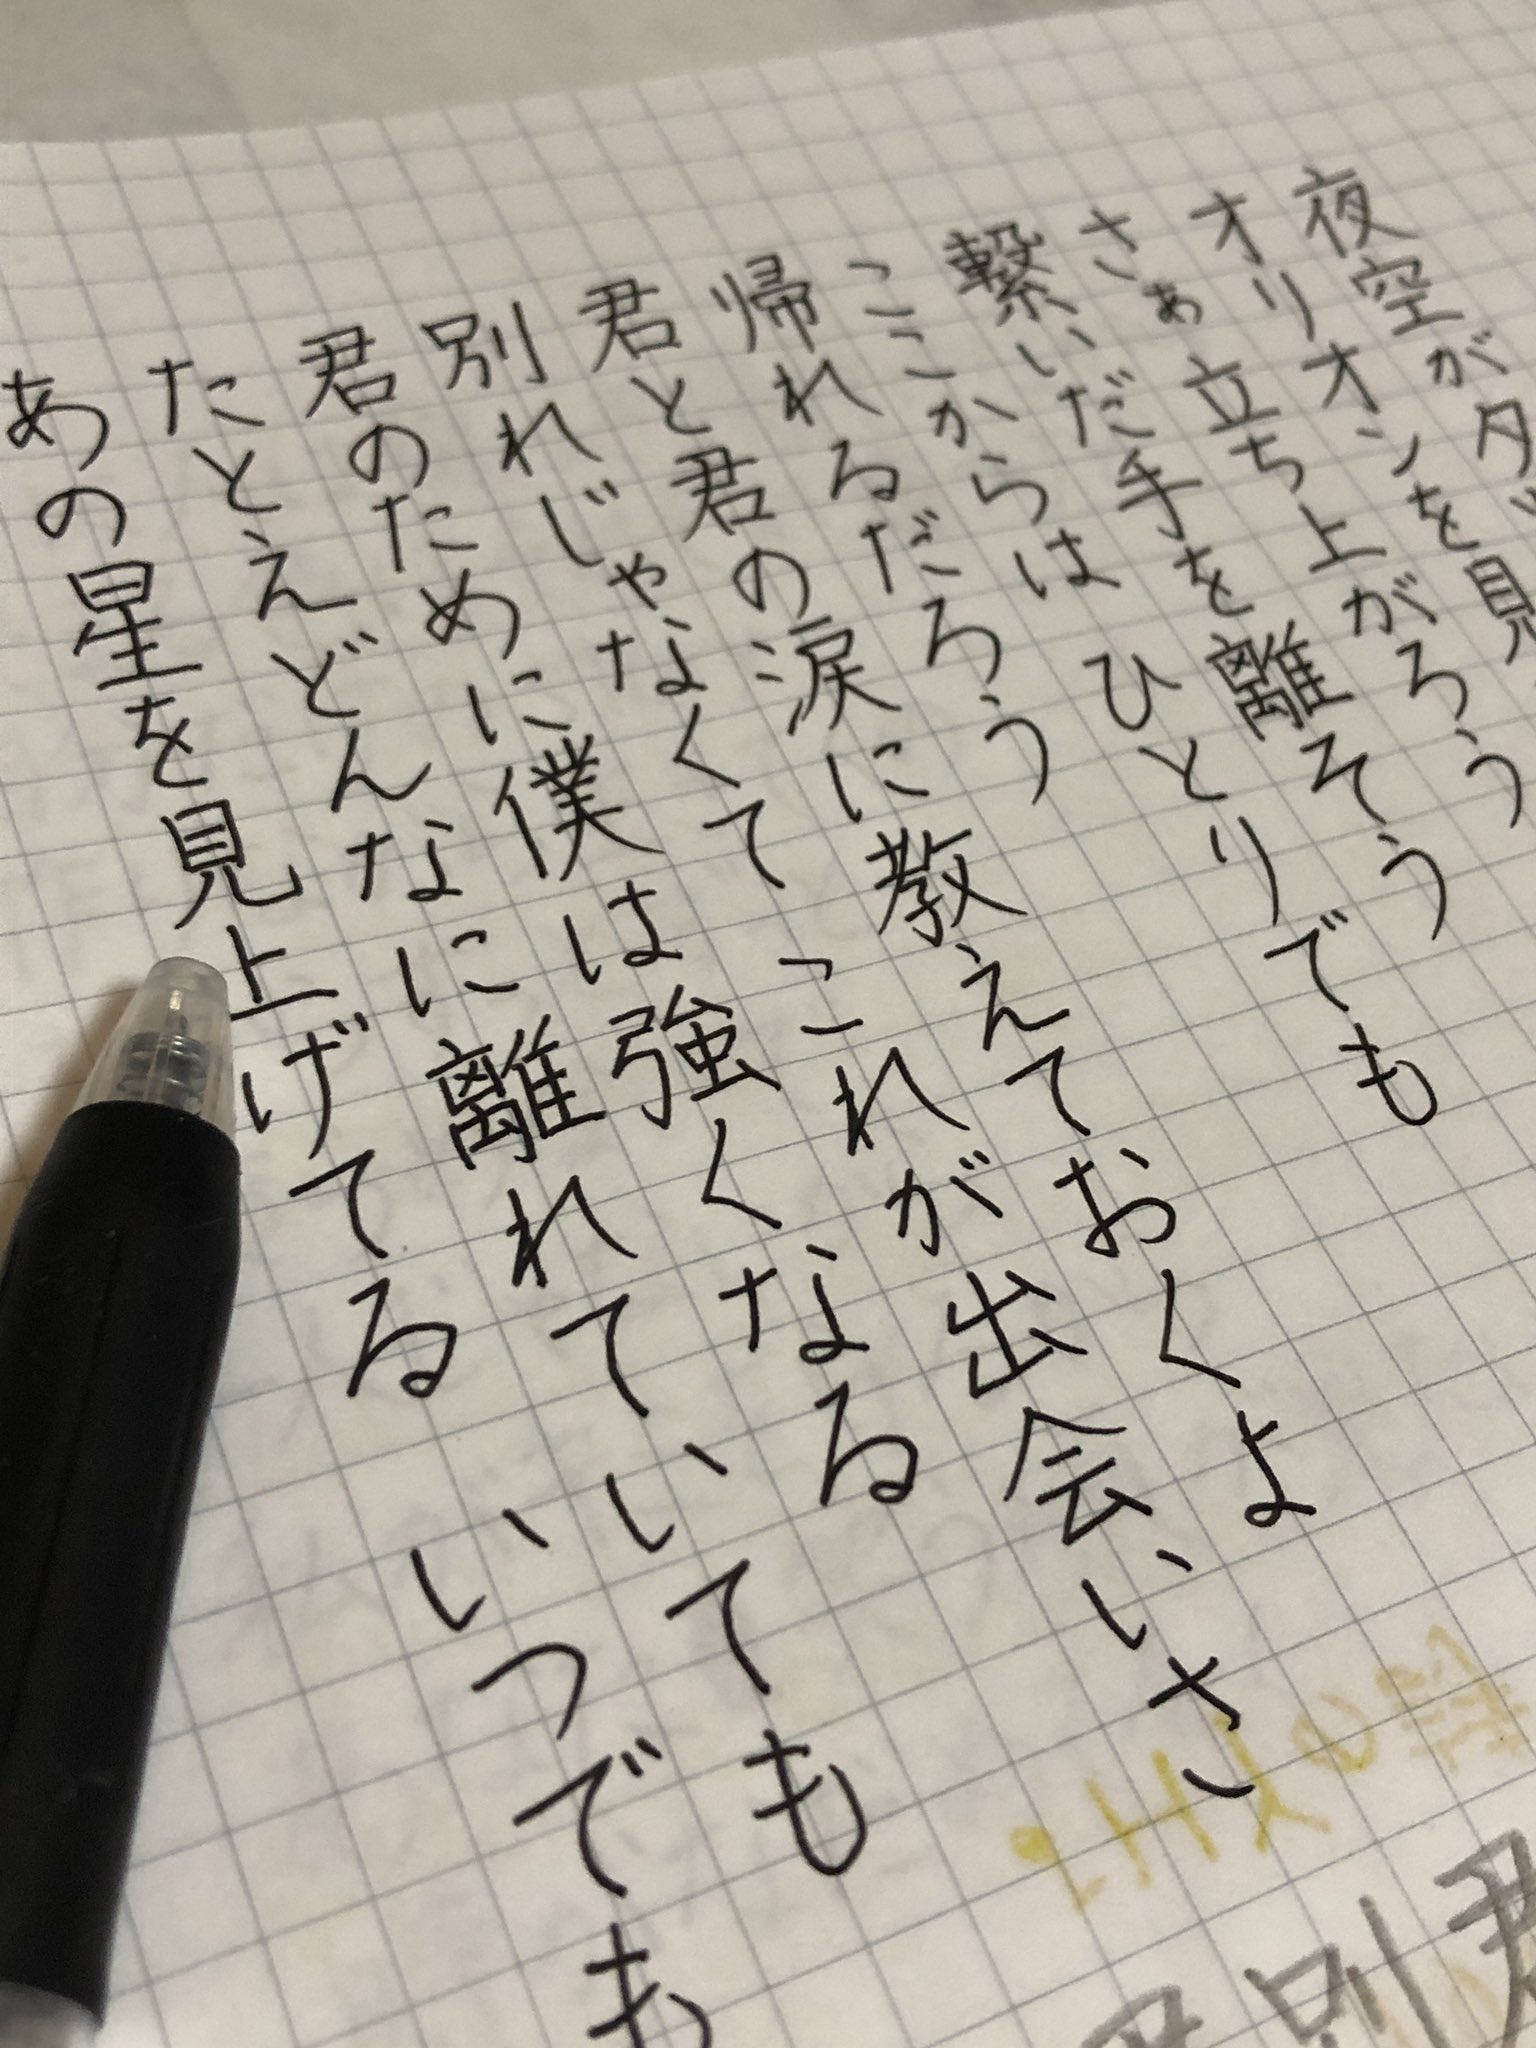 夜空がタ
オリオンを見
さぁ立ち上がろう
繋いだ手を離そう
ここからは ひとりでも
帰れるだろう
君と君の涙に教えておくよ
別れじゃなくて これが出会いさ
君のために僕は強くなる
たとえどんなに離れていても
あの星を見上げてる いつでも